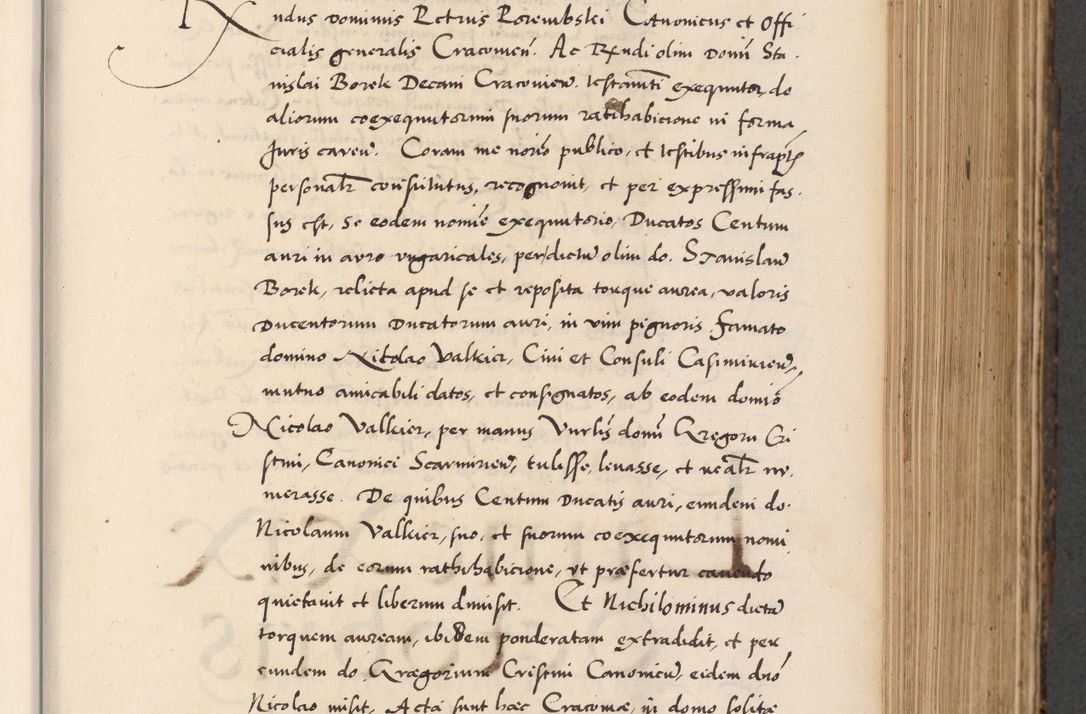 Rndus Dominus Petrus Porembski Canonicus et Offi
cialis generalis Cracovien. Ac Rndi olim Domi Sta
nislai Borek Decani Cracovien. testamti exequutor, do
aliorum coexequutorum suorum ratihabicione in forma
Juris caven. Coram me norio publico, et testibus infrapts
personalr constitutus, recognovit, et per expressum fas
sus est, se eodem nomie exequutorio, Ducatos Centum
auri in auro ungaricales, per dictu olim do. Stanislau
Borek, relicta apud se et reposita torque aurea, valoris
Ducentorum Ducatorum auri, in vim pignoris Famato
domino Nicolao Valkier, Civi et Consuli Casimirien,
mutuo amicabili datos, et consignatos, ab eodem domio
Nicolao Valkier, per manus Vnrlis domi Gregorii Cri
stini, Canonici Scarmirien, tulisse, levasse, et realr nu
merasse. De quibus Centum Ducatis auri, eundem do.
Nicolaum Valkier, suo, et suorum coexequutorum nomi
nibus, de eorum rathihabicione, ut præfertur cavendo
quietavit et liberum dmisit. Et Nichilominus dicta
torquem auream, ibidem ponderatam extradidit, et per
eundem do Grægorium Cristini Canonicu, eidem dno
Nicolao misit. Acta sunt hæc Cracoviæ, in domo solitæ